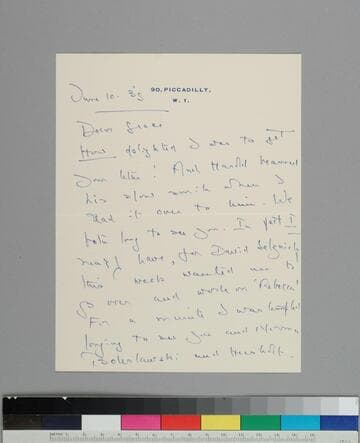 90, PICCADILLY,
W. 1.
June 10. 35
Dear Grace
How delighted I was to get
your letter! And Harold beamed
his slow smile when I
read it over to him. We
both long to see you. In fact I
might have, for David Selznick
this week wanted me to
go over and work on "Rebecca"
For a minute I was tempted
longing to see you and
Boleslawski and